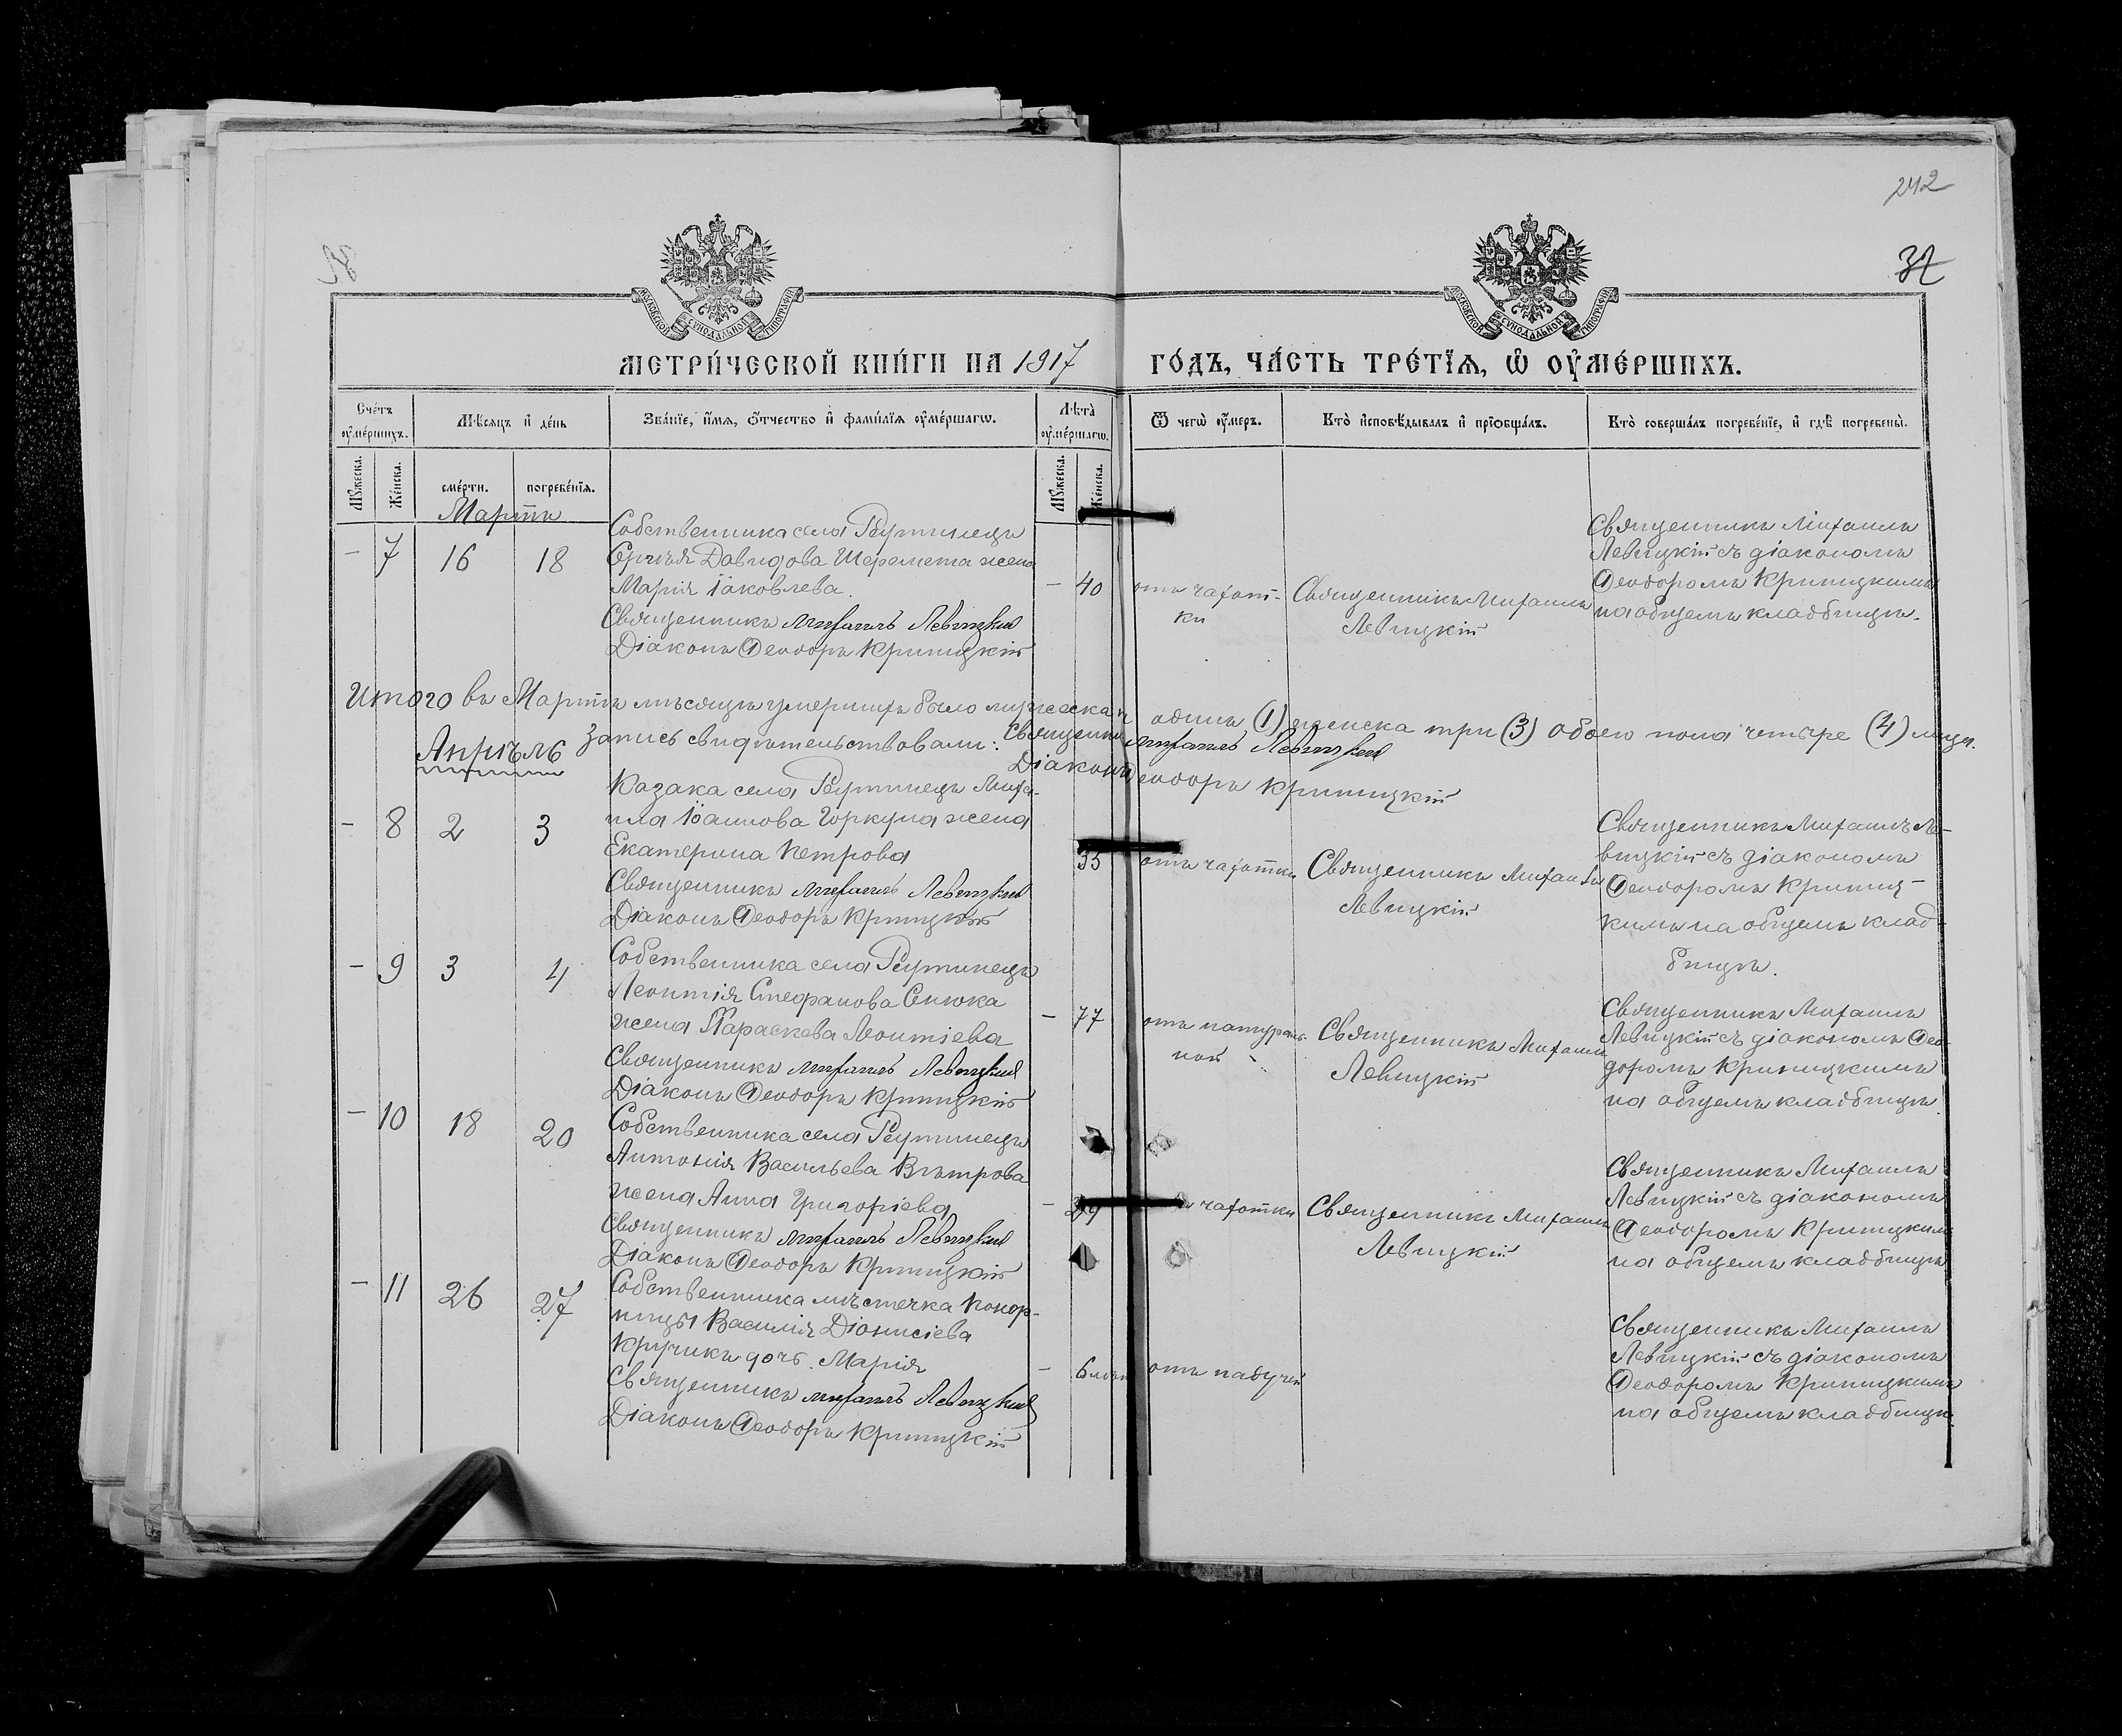 242
38
37
МОСКОВСКОЙ СУНОДАЛЬНОЙ ТИПОГРАФІИ
МОСКОВСКОЙ СУНОДАЛЬНОЙ ТИПОГРАФІИ
МЕТРИ́ЧЕСКОЙ КНИ́ГИ НА 1917 ГО́ДЪ, ЧА́СТЬ ТРЕ́ТЇѦ, Ѡ҆ ОУ҆МЕ́РШИХЪ.
Сче́тъ оу҆ме́ршихъ.
Мѣ́сѧцъ и҆ де́нь
Зва́нїе, и҆́мѧ, ѻ҆́тчество и҆ фами́лїѧ оу҆ме́ршагѡ.
Лѣ́та оу҆ме́ршагѡ.
Ѿ чегѡ̀ оу҆́меръ.
Кто̀ и҆сповѣ́дывалъ и҆ прїѡбща́лъ.
Кто̀ соверша́лъ погребе́нїе, и҆ гдѣ̀ погребены̀.
Мꙋ́жеска.
Же́нска.
сме́рти.
погребе́нїѧ.
Мꙋ́жеска.
Же́нска.
Мартъ
– 7 16 18
Собственника села Реутинецъ
Сергѣя Давидова Шеремета жена
Марія Іаковлева.
Священникъ Михаилъ Левицкій
Діаконъ Ѳеодоръ Криницкій
– 40
отъ чахот-
ки
Священникъ Михаилъ
Левицкій
Священникъ Михаилъ
Левицкій съ діакономъ
Ѳеодоромъ Криницкимъ
на общемъ кладбищѣ.
Итого въ Мартѣ мѣсяцѣ умершихъ было мужеска п одинъ (1) женска три (3) обоего пола четыре (4) лица.
Запись свидѣтельствовали: Священникъ Михаилъ Левицкій
Діаконъ Ѳеодоръ Криницкій
Апрѣль
– 8 2 3
Казака села Реутинецъ Миха-
ила Іоаннова Горкуна жена
Екатерина Петрова
Священникъ Михаилъ Левицкій
Діаконъ Ѳеодоръ Криницкій
35
отъ чахотки
Священникъ Михаилъ
Левицкій
Священникъ Михаилъ Ле-
вицкій съ діакономъ
Ѳеодоромъ Криниц-
кимъ на общемъ клад-
бищѣ.
– 9 3 4
Собственника села Реутинецъ
Леонтія Стефанова Сенюка
жена Параскева Леонтіева
Священникъ Михаилъ Левицкій
Діаконъ Ѳеодоръ Криницкій
– 77
отъ натураль-
ной
Священникъ Михаилъ
Левицкій
Священникъ Михаилъ
Левицкій съ діакономъ Ѳео-
доромъ Криницкимъ
на общемъ кладбищѣ
– 10 18 20
Собственника села Реутинецъ
Антонія Васильева Вѣтрова
жена Анна Григоріева
Священникъ Михаилъ Левицкій
Діаконъ Ѳеодоръ Криницкій
–
чахотки
Священникъ Михаилъ
Левицкій
Священникъ Михаилъ
Левицкій съ діакономъ
Ѳеодоромъ Криницкимъ
на общемъ кладбищѣ
– 11 26 27
Собственника мѣстечка Понор-
ницы Василія Діонисіева
Кручикъ дочь Марія
Священникъ Михаилъ Левицкій
Діаконъ Ѳеодоръ Криницкій
– 6
отъ падучей
Священникъ Михаилъ
Левицкій съ діакономъ
Ѳеодоромъ Криницкимъ
на общемъ кладбищѣ